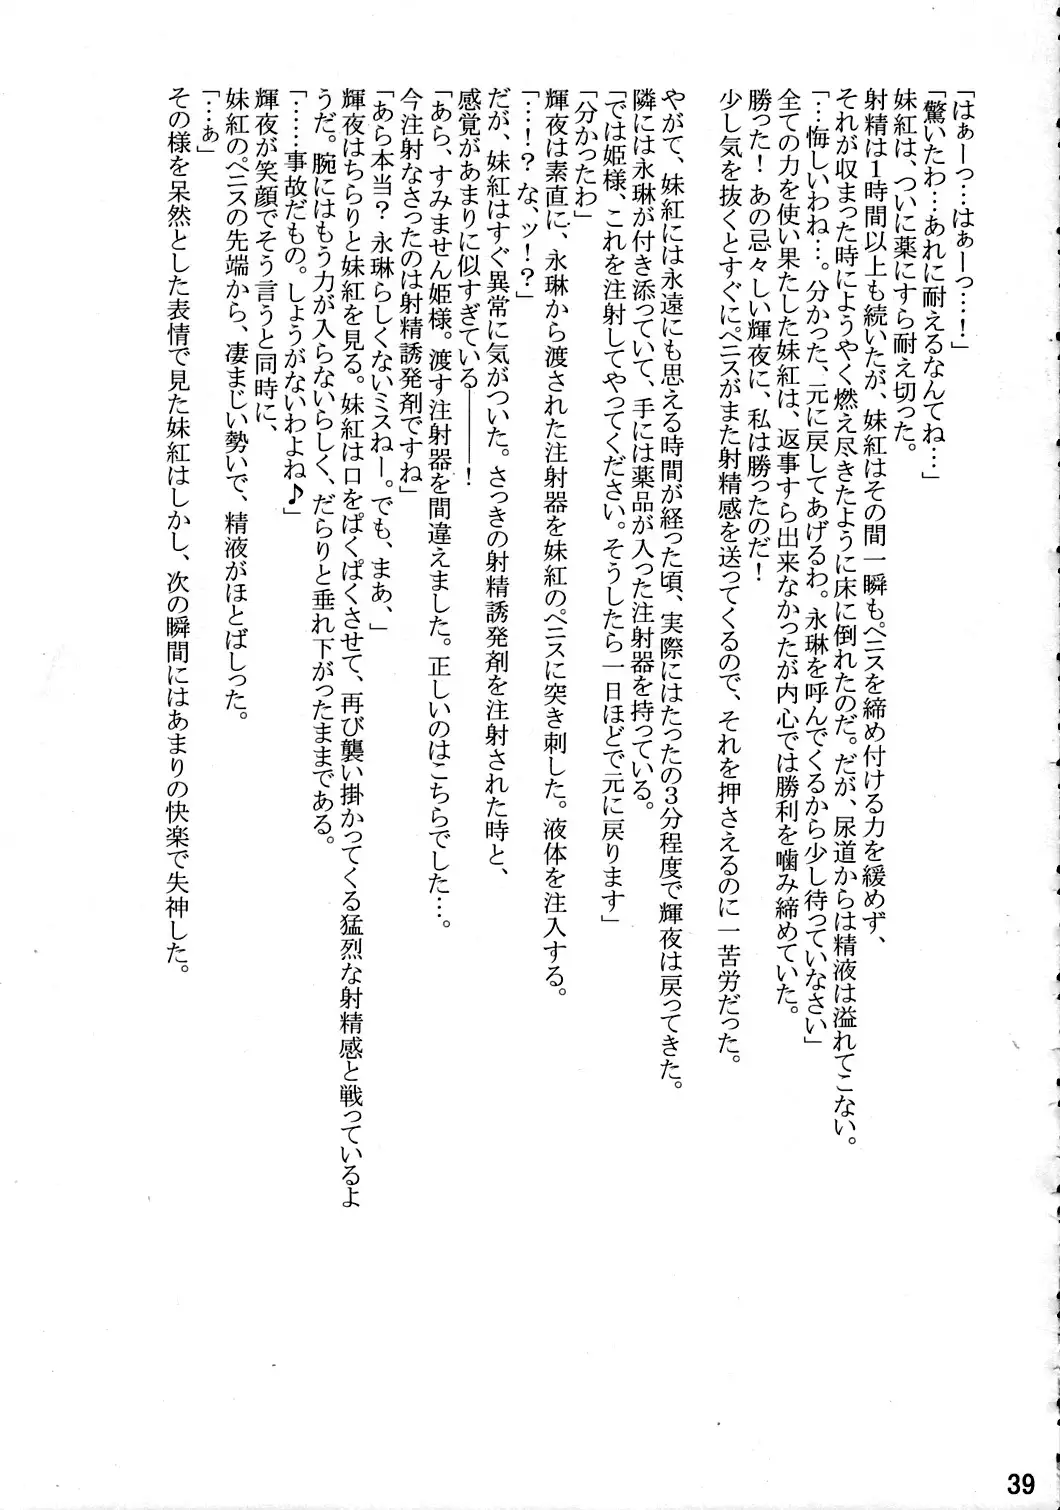 「はぁーっ…はぁーっ…！」
「驚いたわ…あれに耐えるなんてね…」
妹紅は、ついに薬にすら耐え切った。
射精は１時間以上も続いたが、妹紅はその間一瞬もペニスを締め付ける力を緩めず、
それが収まった時にようやく燃え尽きたように床に倒れたのだ。だが、尿道からは精液は溢れてこない。
「…悔しいわね…。分かった、元に戻してあげるわ。永琳を呼んでくるから少し待っていなさい」
全ての力を使い果たした妹紅は、返事すら出来なかったが内心では勝利を噛み締めていた。
勝った！あの忌々しい輝夜に、私は勝ったのだ！
少し気を抜くとすぐにペニスがまた射精感を送ってくるので、それを押さえるのに一苦労だった。
やがて、妹紅には永遠にも思える時間が経った頃、実際にはたったの３分程度で輝夜は戻ってきた。
隣には永琳が付き添っていて、手には薬品が入った注射器を持っている。
「では姫様、これを注射してやってください。そうしたら一日ほどで元に戻ります」
「分かったわ」
輝夜は素直に、永琳から渡された注射器を妹紅のペニスに突き刺した。液体を注入する。
「…！？な、ッ！？」
だが、妹紅はすぐ異常に気がついた。さっきの射精誘発剤を注射された時と、
感覚があまりに似すぎている―――！
「あら、すみません姫様。渡す注射器を間違えました。正しいのはこちらでした…。
今注射なさったのは射精誘発剤ですね」
「あら本当？永琳らしくないミスねー。でも、まあ、」
輝夜はちらりと妹紅を見る。妹紅は口をぱくぱくさせて、再び襲い掛かってくる猛烈な射精感と戦っているよ
うだ。腕にはもう力が入らないらしく、だらりと垂れ下がったままである。
「……事故だもの。しょうがないわよね♪」
輝夜が笑顔でそう言うと同時に、
妹紅のペニスの先端から、凄まじい勢いで、精液がほとばしった。
「…ぁ」
その様を呆然とした表情で見た妹紅はしかし、次の瞬間にはあまりの快楽で失神した。
39